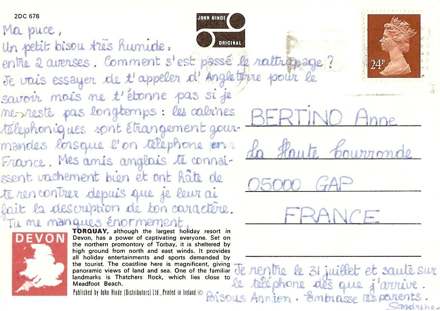 2DC 676
JOHN HINDE
ORIGINAL
24P
Ma puce,
Un petit bisou très humide,
entre 2 averses. Comment s'est passé le rattrapage ?
Je vais essayer de t'appeler d'Angleterre pour le
savoir mais ne t'étonne pas si je
ne reste pas longtemps : les cabines
téléphoniques sont étrangement gour-
mandes lorsque l'on téléphone en
France. Mes amis anglais te connai-
ssent vachement bien et ont hâte de
te rencontrer depuis que je leur ai
fait la description de ton caractère.
Tu me manques énormément.
BERTINO Anne
La Haute bourronde
05000 GAP
FRANCE
DEVON
TORQUAY, although the largest holiday resort in
Devon, has a power of captivating everyone. Set on
the northern promontory of Torbay, it is sheltered by
high ground from north and east winds. It provides
all holiday entertainments and sports demanded by
the tourist. The coastline here is magnificent, giving
panoramic views of land and sea. One of the familiar
landmarks is Thatchers Rock, which lies close to
Meadfoot Beach.
Published by John Hinde (Distributors) Ltd. Printed in Ireland
Je rentre le 31 juillet et saute sur
le téléphone dès que j'arrive.
Bisous Annion. Embrasse tes parents.
Sandrine